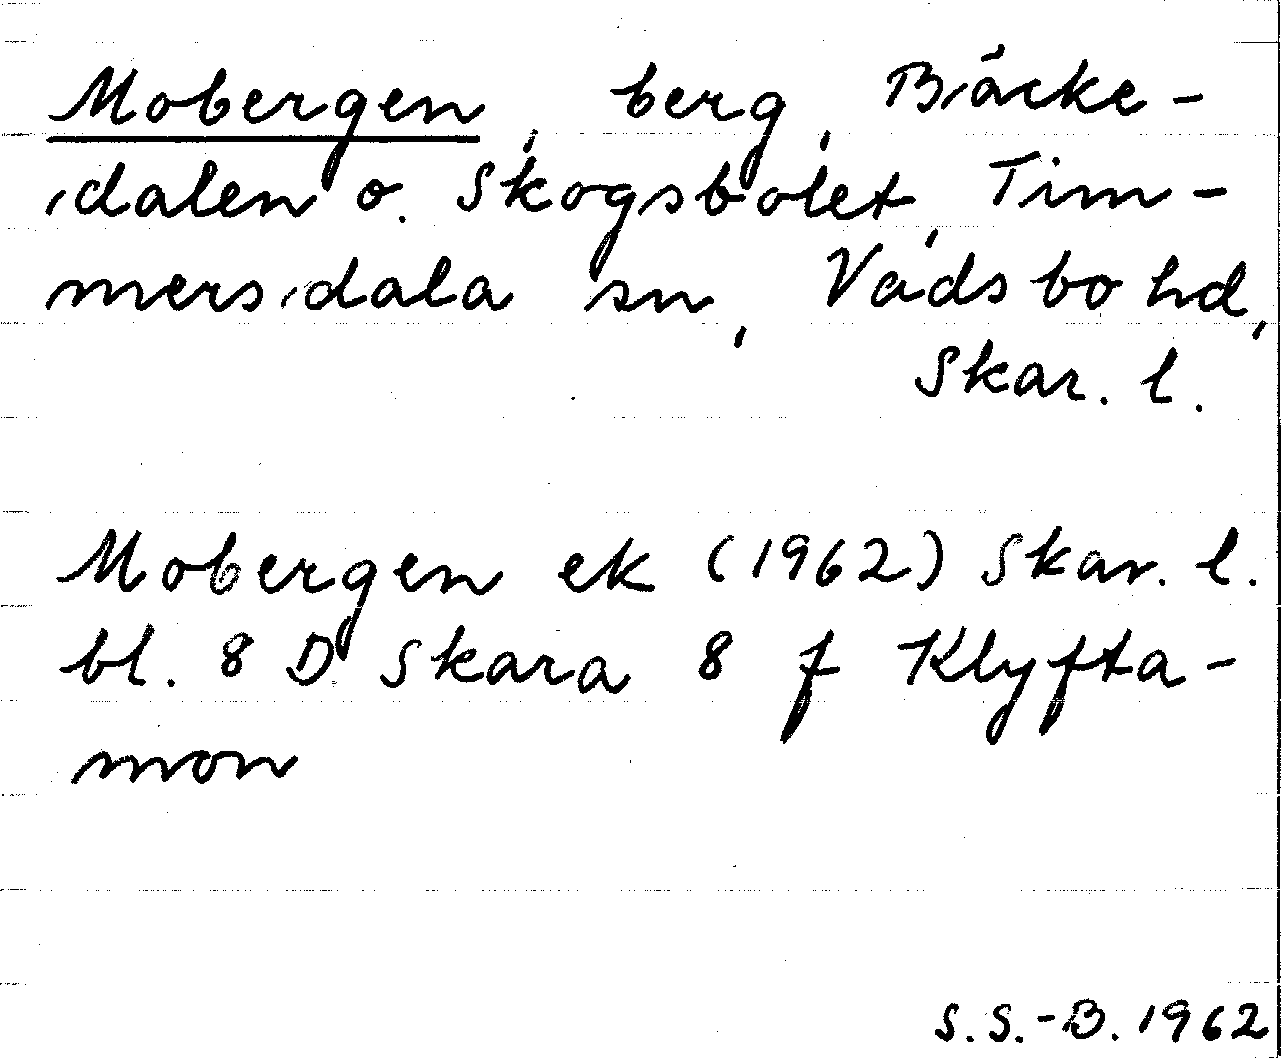 Mobergen, berg, Bäcke-
dalen o. Skogsbolet, Tim-
mersdala sn, Vadsbo hd,
Skar. l.
Mobergen ek (1962) Skar. l.
bl. 8 D Skara 8 f Klyfta-
mon
S.S.-B. 1962